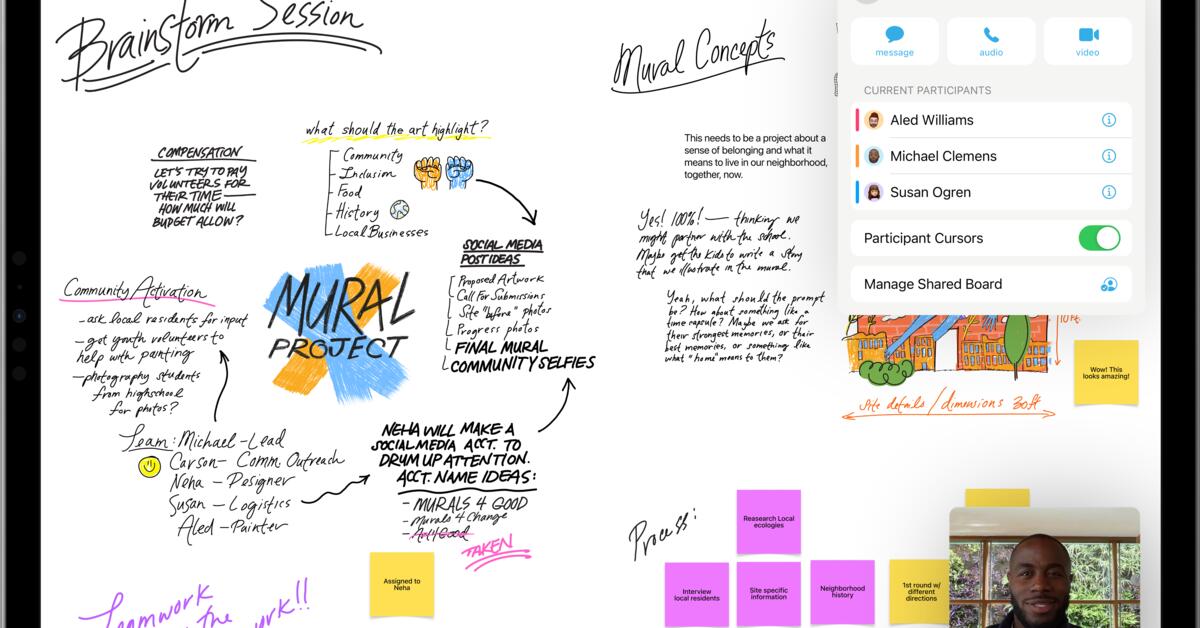 Brainstorm Session
what should the art highlight?
Community
Inclusion
Food
History
Local Businesses
COMPENSATION
LET'S TRY TO PAY
VOLUNTEERS FOR
THEIR TIME —
HOW MUCH WILL
BUDGET ALLOW?
SOCIAL MEDIA
POST IDEAS
Proposed Artwork
Call For Submissions
Site "before" photos
Progress photos
FINAL MURAL
COMMUNITY SELFIES
MURAL
PROJECT
Community Activation
- ask local residents for input
- got youth volunteers to
help with painting
- photography students
from highschool
for photos?
Team: Michael - Lead
Carson - Comm Outreach
Neha - Designer
Susan - Logistics
Aled - Painter
NEHA WILL MAKE A
SOCIAL MEDIA ACCT. TO
DRUM UP ATTENTION.
ACCT. NAME IDEAS:
- MURALS 4 GOOD
- Murals 4 Change
- Art4Good
TAKEN
Assigned to
Neha
Teamwork
the
Mural Concepts
This needs to be a project about a
sense of belonging and what it
means to live in our neighborhood,
together, now.
Yes! 100%! — thinking we
might partner with the school.
Maybe get the kids to write a story
that we illustrate in the mural.
Yeah, what should the prompt
be? How about something like a
time capsule? Maybe we ask for
their strongest memories, or their
best memories, or something like
what "home" means to them?
message
audio
video
CURRENT PARTICIPANTS
Aled Williams
Michael Clemens
Susan Ogren
Participant Cursors
Manage Shared Board
10 ft.
Wow! This
looks amazing!
Site details / dimensions 30ft
Process:
Reasearch Local
ecologies
Interview
local residents
Site specific
information
Neighborhood
history
1st round w/
different
directions